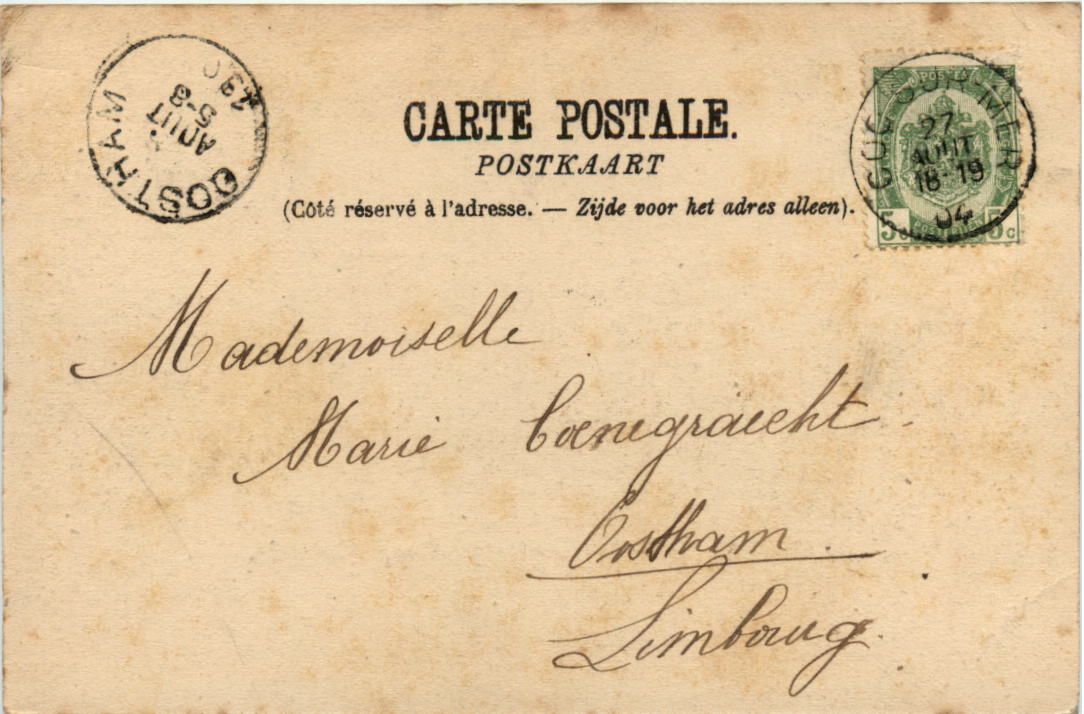 OOSTHAM
AOUT
5-8
CARTE POSTALE.
POSTKAART
(Côté réservé à l'adresse. — Zijde voor het adres alleen).
POSTES
COC-SUR-MER
27
AOUT
18-19
04
5c 5c
Mademoiselle
Marie Coenegraecht
Oostham.
Limbourg.